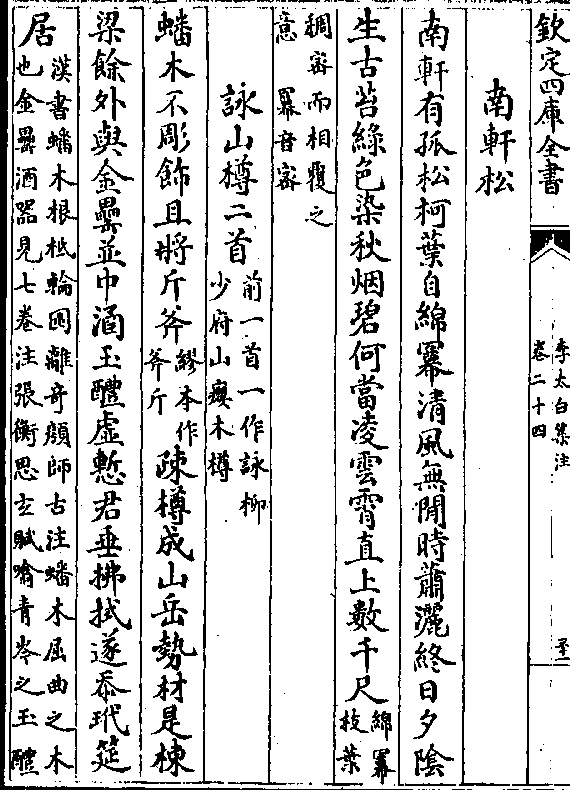 欽定四庫全書
李太白集注
卷二十四
南軒松
南軒有孤松柯葉自綿冪清風無閒時蕭灑終日夕陰
生古苔綠色染秋烟碧何當凌雲霄直上數千尺綿冪
枝葉
稠密而相覆之
意　冪音密
詠山樽二首前一首一作詠柳
少府山癭木樽
蟠木不彫飾且將斤斧繆本作
斧斤疎樽成山岳勢材是棟
梁餘外與金罍並中涵玉醴虛慙君垂拂拭遂忝玳筵
居漢書蟠木根柢輪囷離奇顔師古注蟠木屈曲之木
也金罍酒器見七卷注張衡思玄賦噏青岑之玉醴